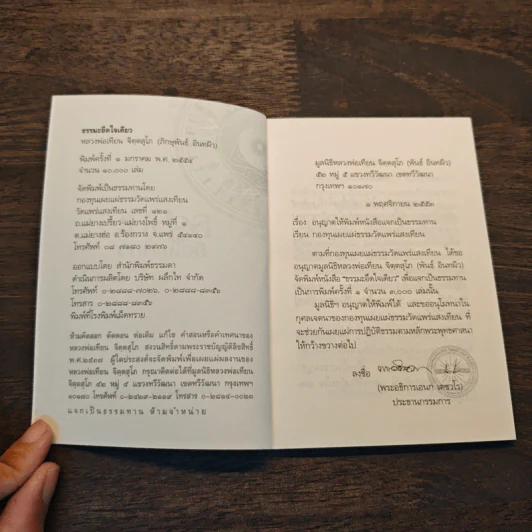 ธรรมะยึดใจเดียว
หลวงพ่อเทียน จิตฺตสุโภ (ภิกษุพันธ์ อินทผิว)
พิมพ์ครั้งที่ ๑ มกราคม พ.ศ. ๒๕๕๔
จำนวน ๑๐,๐๐๐ เล่ม
จัดพิมพ์เป็นธรรมทานโดย
กองทุนเผยแผ่ธรรมวัดแพร่แสงเทียน
วัดแพร่แสงเทียน เลขที่ ๑๒๑
ถ.แม่ยางเปรี้ยว-แม่ยางโพธิ์ หมู่ที่ ๑
ต.แม่ยางฮ่อ อ.ร้องกวาง จ.แพร่ ๕๔๑๔๐
โทรศัพท์ ๐๘
ออกแบบโดย สำนักพิมพ์ธรรมดา
ดำเนินการผลิตโดย บริษัท ผลึกไท จำกัด
โทรศัพท์ ๐-๒๘๘๘-๗๐๒๖, ๐-๒๘๘๘-๘๓๕๖
โทรสาร ๐-๒๘๘๘-๘๓๕๖
พิมพ์ที่โรงพิมพ์เม็ดทราย
ห้ามคัดลอก ตัดตอน ต่อเติม แก้ไข คำสอนหรือคำเทศนาของ
หลวงพ่อเทียน จิตฺตสุโภ สงวนลิขสิทธิ์ตามพระราชบัญญัติลิขสิทธิ์
พ.ศ. ๒๕๓๗ ผู้ใดประสงค์จะจัดพิมพ์เพื่อเผยแผ่ผลงานของ
หลวงพ่อเทียน จิตฺตสุโภ กรุณาติดต่อได้ที่มูลนิธิหลวงพ่อเทียน
จิตฺตสุโภ ๕๒ หมู่ ๕ แขวงทวีวัฒนา เขตทวีวัฒนา กรุงเทพฯ
๑๐๑๗๐ โทรศัพท์ ๐-๒๔๒๙-๒๑๑๙ โทรสาร ๐-๒๘๑๔-๐๐๒๓
แจกเป็นธรรมทาน ห้ามจำหน่าย
มูลนิธิหลวงพ่อเทียน จิตฺตสุโภ (พันธ์ อินทผิว)
๕๒ หมู่ ๕ แขวงทวีวัฒนา เขตทวีวัฒนา
กรุงเทพฯ ๑๐๑๗๐
๑ พฤศจิกายน ๒๕๕๓
เรื่อง อนุญาตให้พิมพ์หนังสือแจกเป็นธรรมทาน
เรียน กองทุนเผยแผ่ธรรมวัดแพร่แสงเทียน
ตามที่กองทุนเผยแผ่ธรรมวัดแพร่แสงเทียน ได้ขอ
อนุญาตมูลนิธิหลวงพ่อเทียน จิตฺตสุโภ (พันธ์ อินทผิว)
จัดพิมพ์หนังสือ "ธรรมะยึดใจเดียว" เพื่อแจกเป็นธรรมทาน
เป็นการพิมพ์ครั้งที่ ๑ จำนวน ๑๐,๐๐๐ เล่มนั้น
มูลนิธิฯ อนุญาตให้พิมพ์ได้ และขออนุโมทนาใน
กุศลเจตนาของกองทุนเผยแผ่ธรรมวัดแพร่แสงเทียน ที่
จะช่วยกันเผยแผ่การปฏิบัติธรรมตามหลักพระพุทธศาสนา
ให้กว้างขวางต่อไป
ลงชื่อ
(พระอธิการเอนก เตชวโร)
ประธานกรรมการ